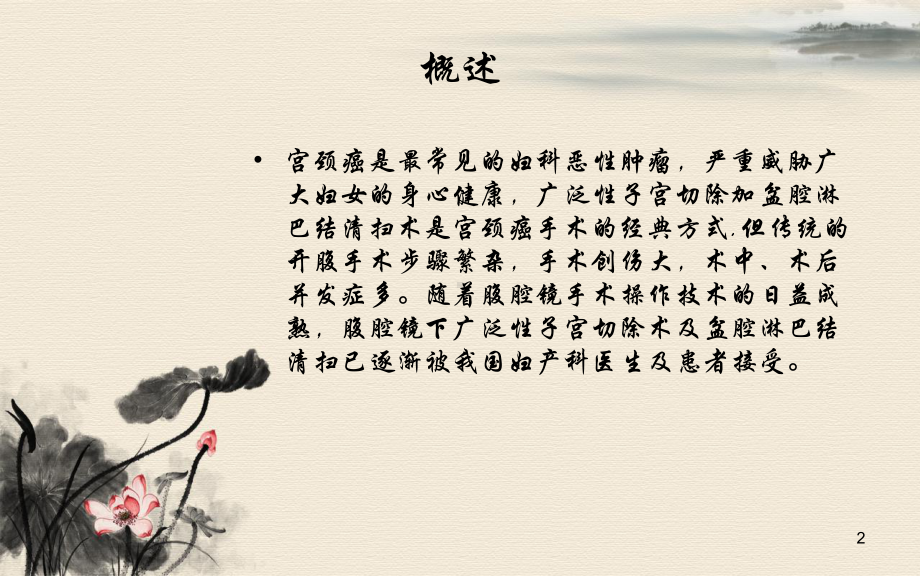 概述
• 宫颈癌是最常见的妇科恶性肿瘤，严重威胁广
大妇女的身心健康，广泛性子宫切除加盆腔淋
巴结清扫术是宫颈癌手术的经典方式.但传统的
开腹手术步骤繁杂，手术创伤大，术中、术后
并发症多。随着腹腔镜手术操作技术的日益成
熟，腹腔镜下广泛性子宫切除术及盆腔淋巴结
清扫已逐渐被我国妇产科医生及患者接受。
2